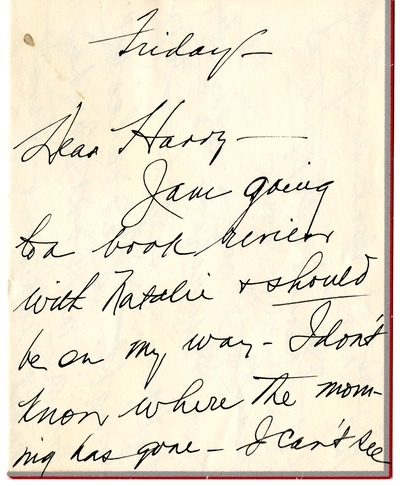 Friday—
Dear Harry—
I am going
to a book review
with Natalie & should
be on my way - I don't
know where the mor-
ning has gone - I can't see